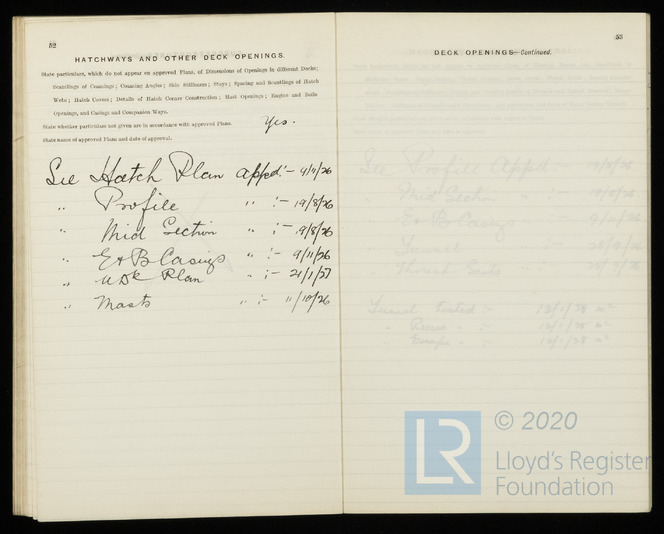 52
HATCHWAYS AND OTHER DECK OPENINGS.
State particulars, which do not appear on approved Plans, of Dimensions of Openings in different Decks;
Scantlings of Coamings; Coaming Angles; Side Stiffeners; Stays; Spacing and Scantlings of Hatch
Webs; Hatch Covers; Details of Hatch Corner Construction; Mast Openings; Engine and Boiler
Openings, and Casings and Companion Ways.
State whether particulars not given are in accordance with approved Plans. Yes.
State names of approved Plans and date of approval.
See Hatch Plan apped :- 9/11/26
" Profile " :- 19/8/26
" Mid Section " :- 19/8/26
" E & B Casings " :- 9/11/26
" U Dk Plan " :- 21/1/27
" Masts " :- 11/10/26
53
DECK OPENINGS—Continued.
See Profile Apped
" Mid Section
" E & B Casings
" Tunnel
" Thrust Seats
Tunnel Tested :- 12/1/28
© 2020
LR
Lloyd's Register
Foundation